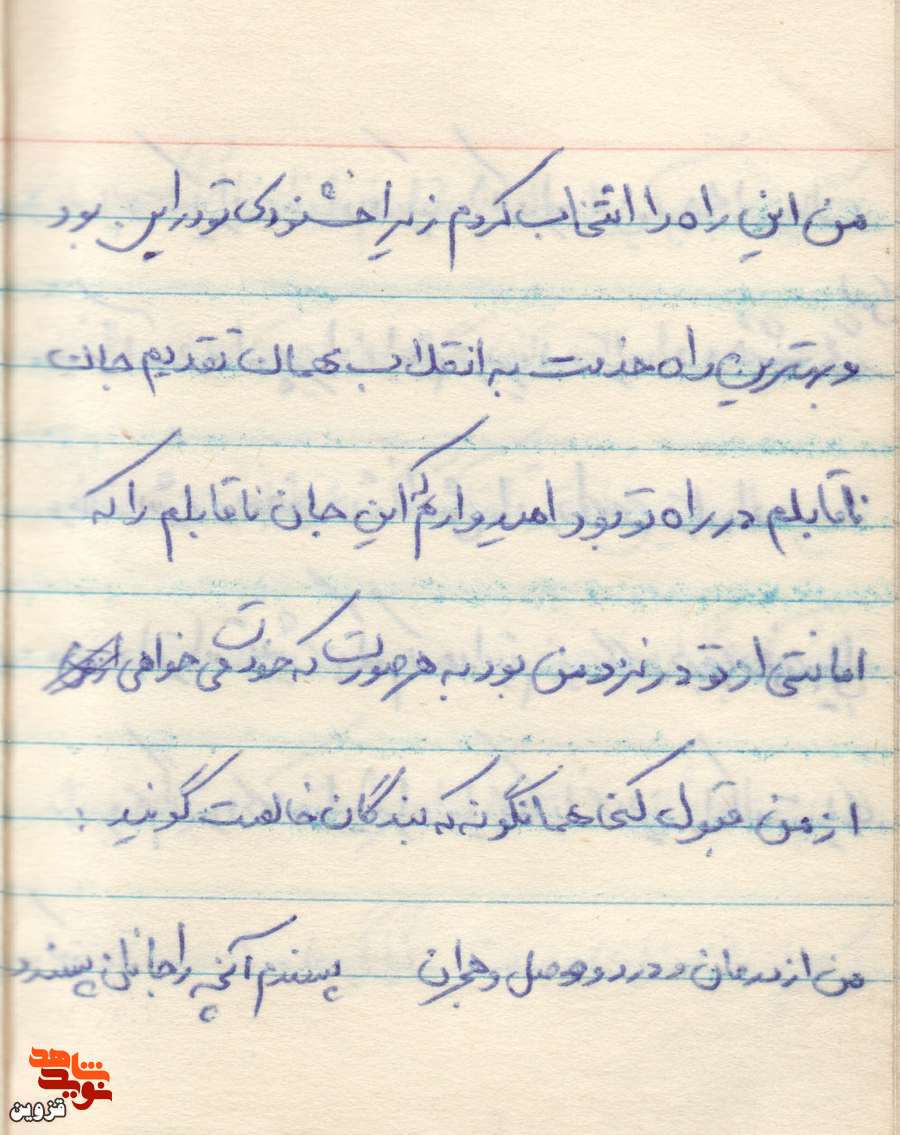 من این راه را انتخاب کردم زیرا خشنودی تو در این بود
و بهترین راه خدمت به انقلاب همان تقدیم جان
ناقابلم در راه تو بود امیدوارم که این جان ناقابلم را که
امانتی از تو در نزد من بود به هر صورت که خودت می خواهی
از من قبول کنی همانگونه که بندگان خالصت گویند :
من از درمان و درد و وصل و هجران پسندم آنچه را جانان پسندد
نوید شاهد
قزوین